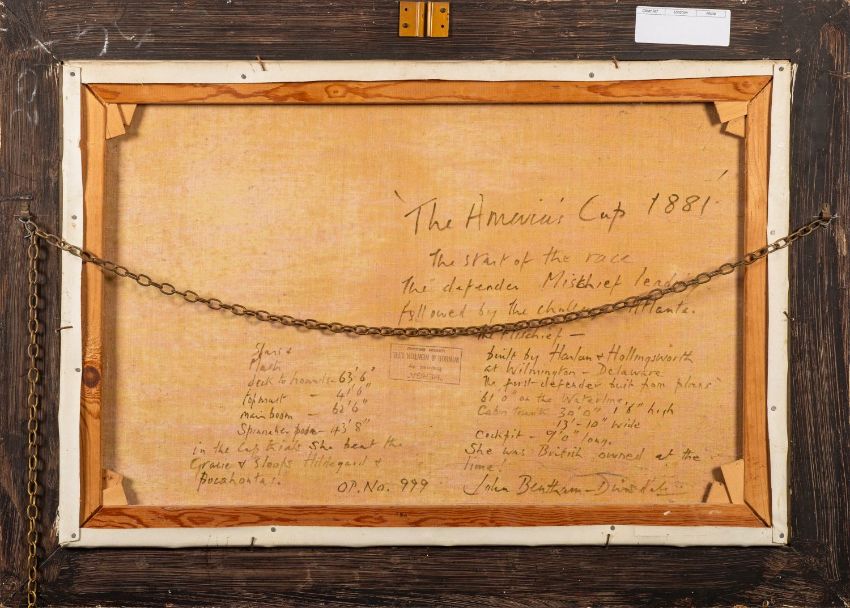 'The America's Cup 1881
The start of the race
The defender Mischief leading
followed by the Atlanta.
The Mischief –
built by Harlan & Hollingsworth
at Wilmington – Delaware
The first defender built from plans
61'0" on the Waterline.
Cabin trunk 30'0" 1'6" high
13'-10" wide
Cockpit – 9'0" long.
She was British owned at the
time!
John Bentham-Dinsdale
deck to hounds – 63'6"
topmast – 41'6"
main boom –
Spinnaker boom – 43'8"
in the Cup trials she beat the
Gracie & Sloops Hildegard &
Pocahontas.
OP. No. 999
WINSOR & NEWTON LTD.
Prepared by